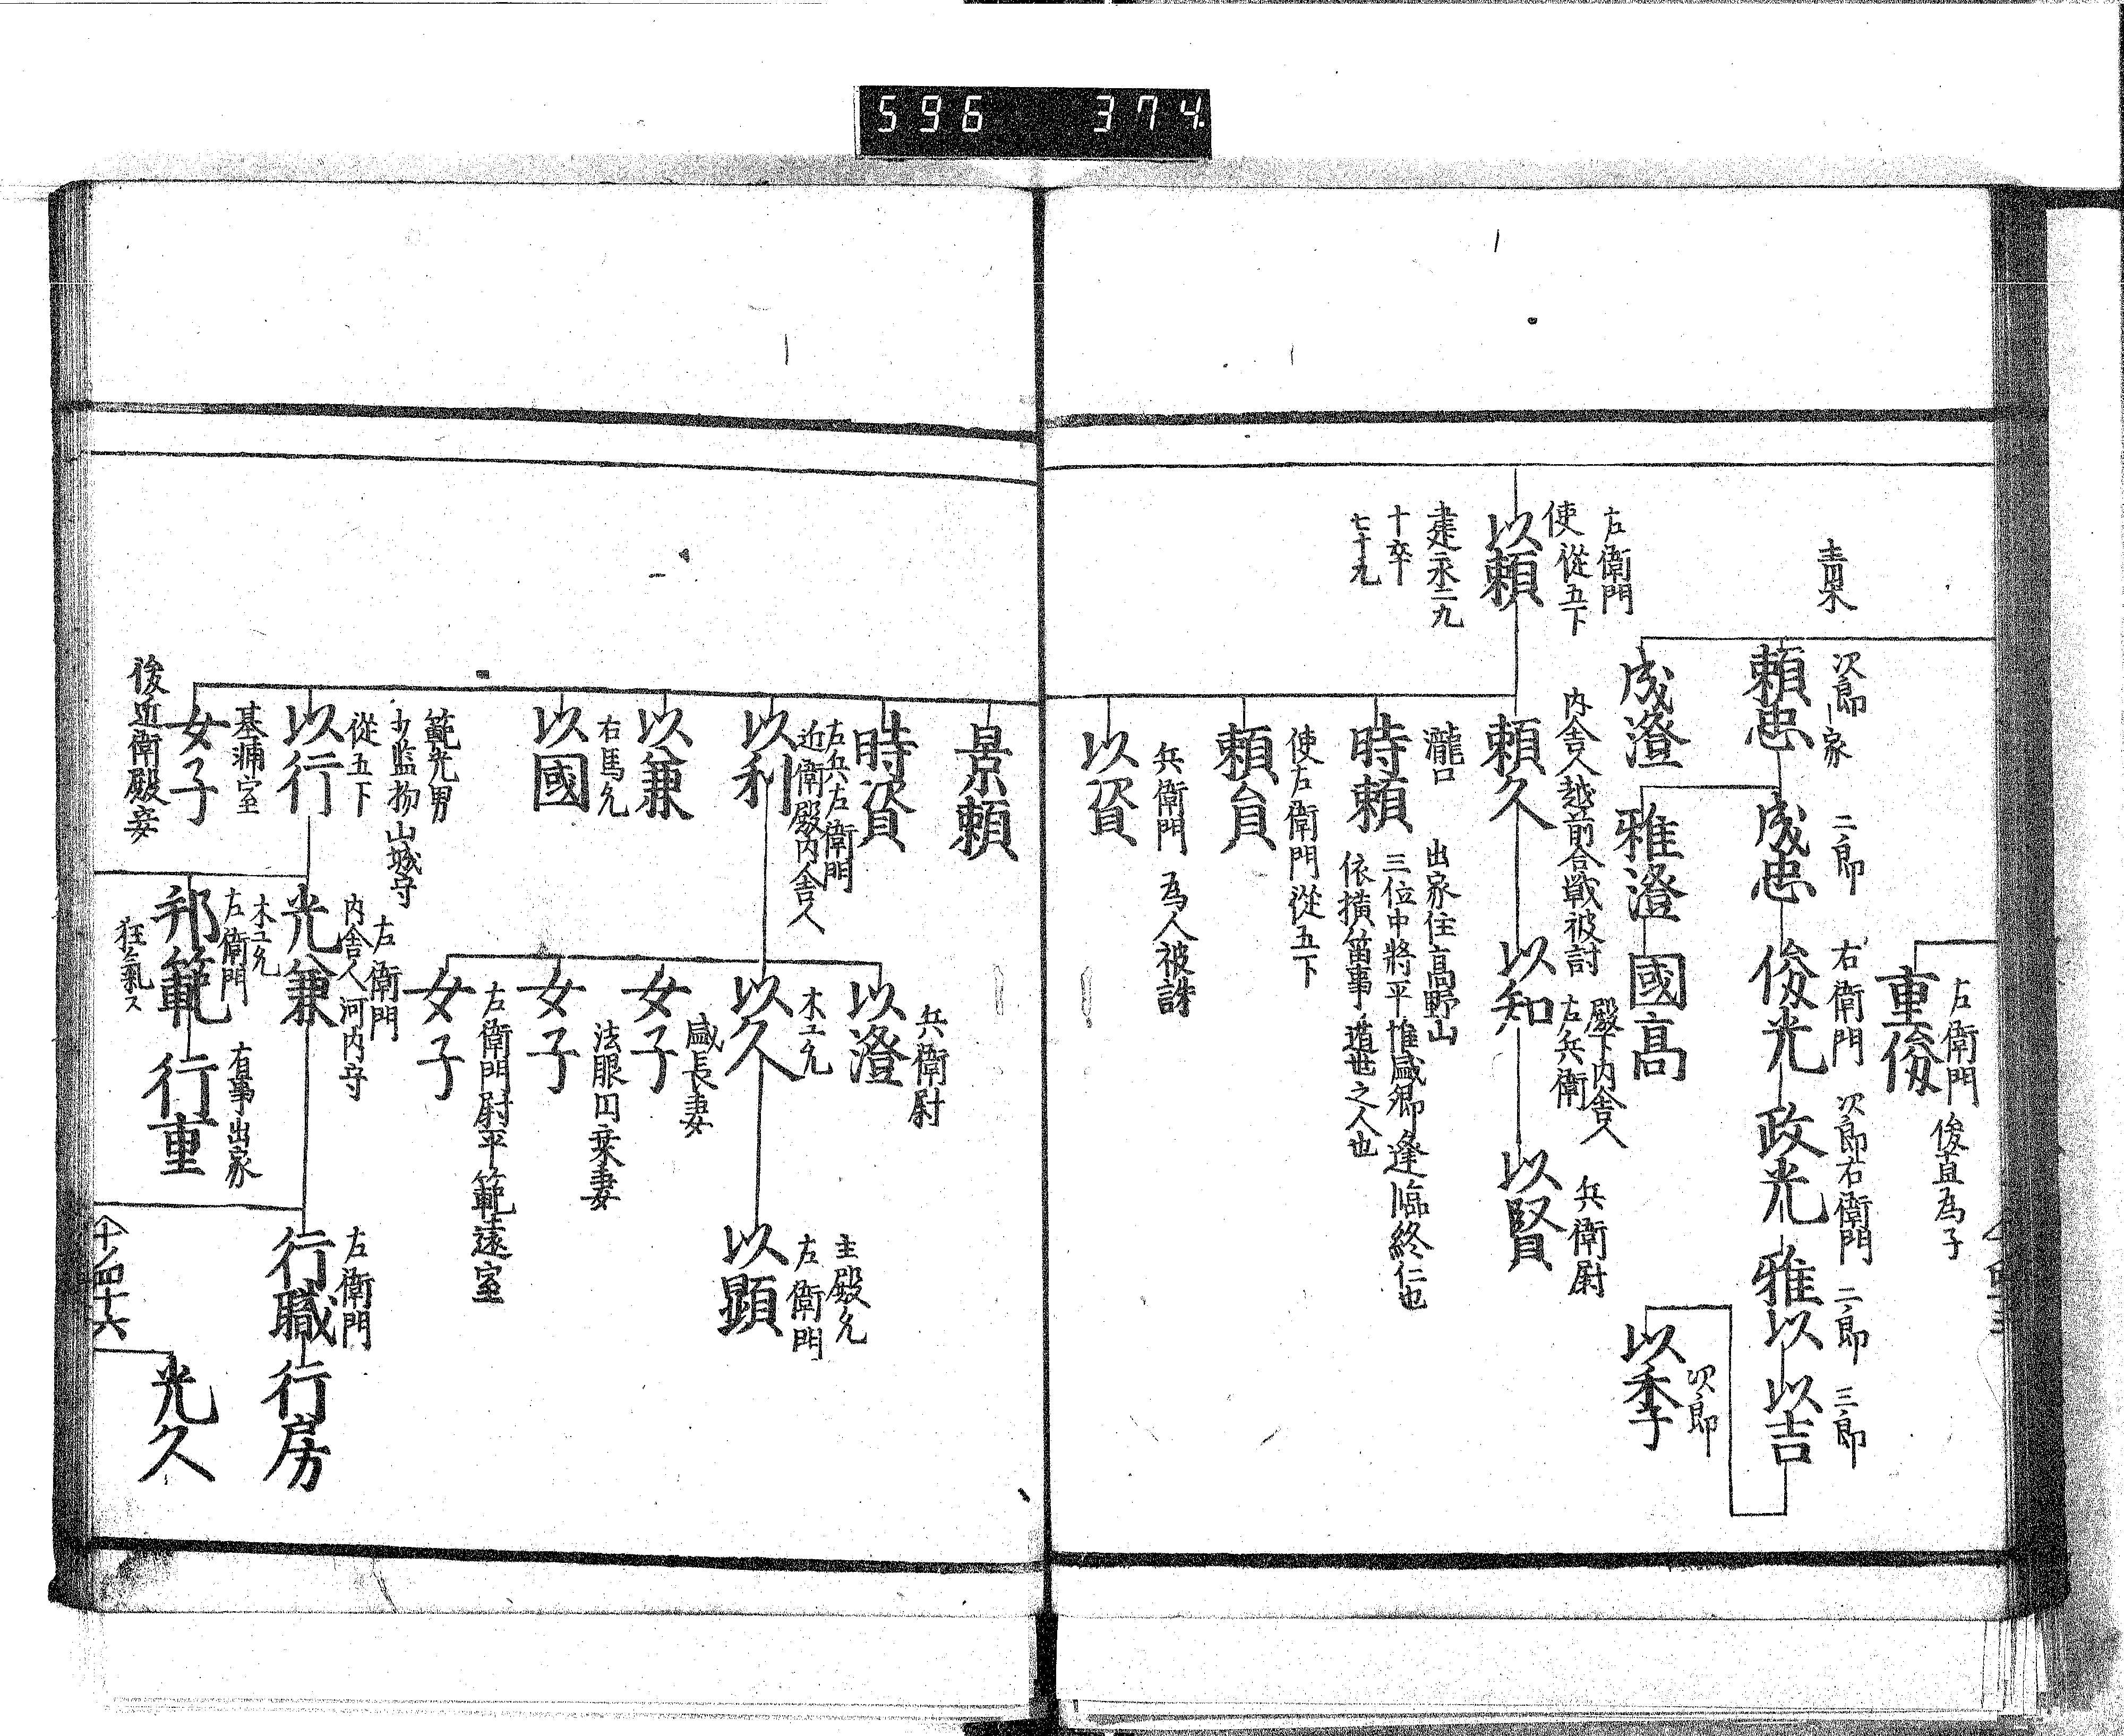 596 374
左衛門
重俊
俊直為子
次郎一家
頼忠
二郎
成忠
右衛門
俊光
次郎右衛門
政光
二郎
雅以
三郎
以吉
次郎
以季
成澄
雅澄
國高
左衛門
使從五下
以頼
建永二九
十卒
七十九
内舎人越前合戦被討
頼久
殿下内舎人
左兵衛
以知
兵衛尉
以賢
瀧口
時頼
出家住高野山
三位中將平惟盛卿逢臨終仁也
依横笛事遁世之人也
使左衛門從五下
頼員
兵衛門
為人被誅
以資
景頼
時資
左兵右衛門
近衛殿内舎人
以利
兵衛尉
以澄
木工允
以久
主殿允
左衛門
以顕
盛長妻
女子
法眼円乗妻
女子
左衛門尉平範遠室
女子
以兼
右馬允
以國
範光男
少監物山城守
從五下
以行
左衛門
内舎人河内守
光兼
左衛門
行職
行房
木工允
左衛門
邦範
狂氣ス
有事出家
行重
光久
基輔室
女子
後近衛殿妾
十ノ四十六